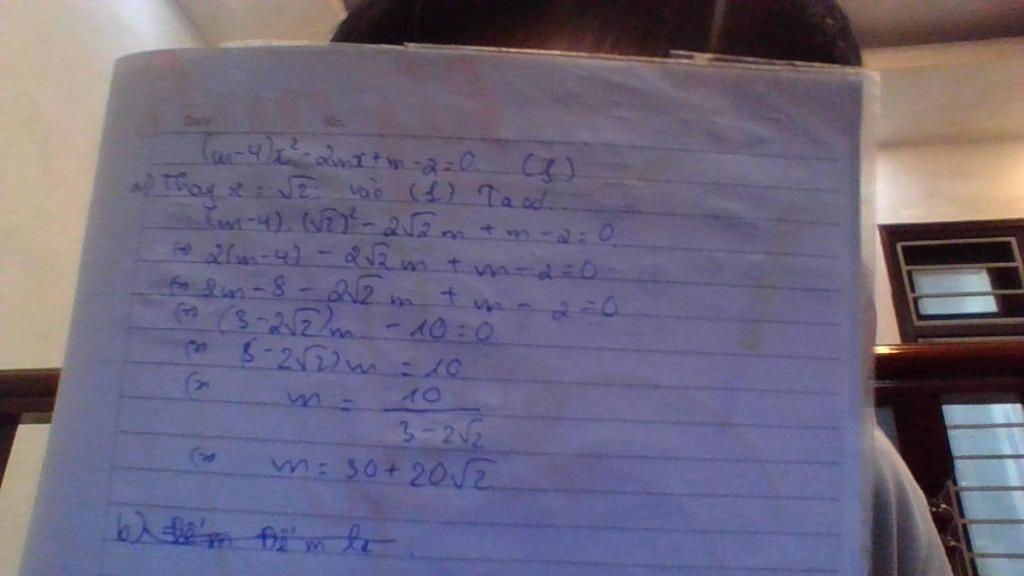 (m-4)x² - 2mx + m - 2 = 0 (1)
a) Thay x = √2 vào (1) Ta có
(m-4).(√2)² - 2√2m + m - 2 = 0
⇔ 2(m-4) - 2√2m + m - 2 = 0
⇔ 2m - 8 - 2√2m + m - 2 = 0
⇔ (3-2√2)m - 10 = 0
⇔ 3-2√2)m = 10
⇔ m = 10 / 3-2√2
⇔ m = 30 + 20√2
b) Để m Để m